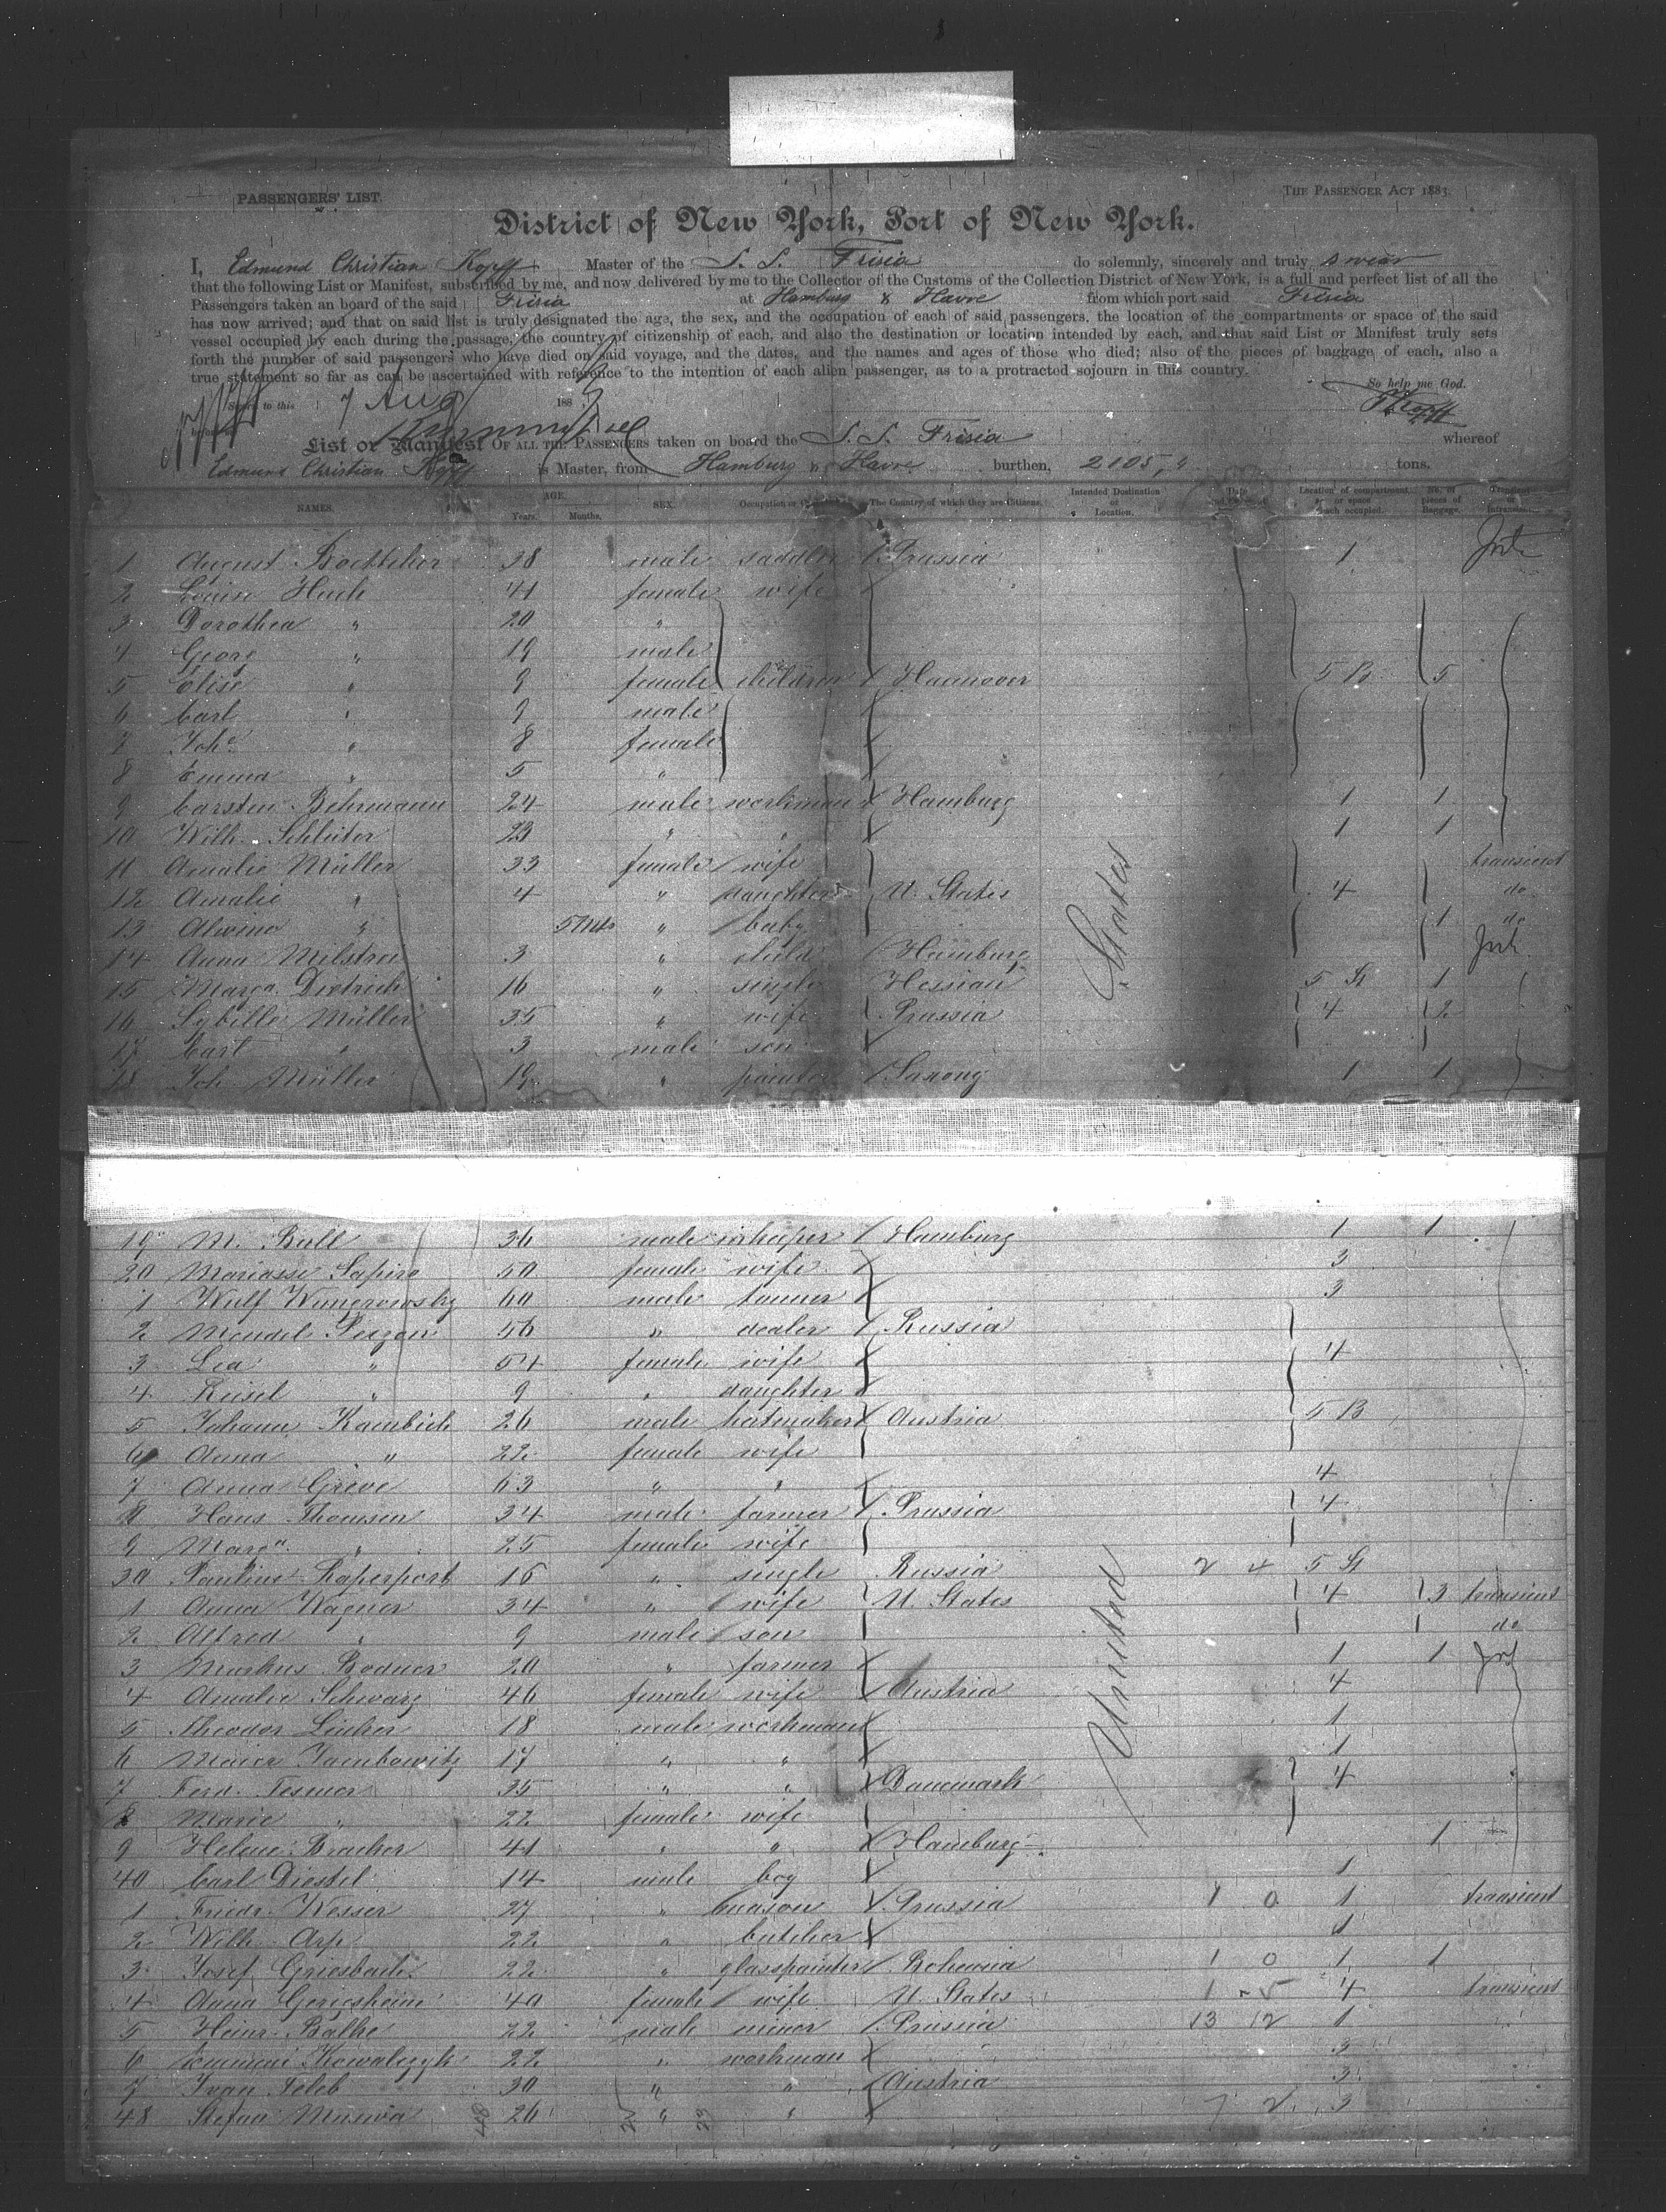 PASSENGERS' LIST. THE PASSENGER ACT 1883.
District of New York, Port of New York.
I, Edmund Christian Kopff Master of the S. S. Frisia do solemnly, sincerely and truly swear
that the following List or Manifest, subscribed by me, and now delivered by me to the Collector of the Customs of the Collection District of New York, is a full and perfect list of all the
Passengers taken on board of the said Frisia at Hamburg & Havre from which port said Frisia
has now arrived; and that on said list is truly designated the age, the sex, and the occupation of each of said passengers, the location of the compartments or space of the said
vessel occupied by each during the passage, the country of citizenship of each, and also the destination or location intended by each, and that said List or Manifest truly sets
forth the number of said passengers who have died on said voyage, and the dates, and the names and ages of those who died; also of the pieces of baggage of each, also a
true statement so far as can be ascertained with reference to the intention of each alien passenger, as to a protracted sojourn in this country.
So help me God.
Sworn to this 7 Aug 188 Kopff
List or Manifest OF ALL THE PASSENGERS taken on board the S. S. Frisia whereof
Edmund Christian Kopff is Master, from Hamburg & Havre burthen, 2105, tons.
NAMES. AGE. Years. Months. SEX. Occupation or The Country of which they are Citizens. Intended Destination or Location. Date Location of compartment or space each occupied. No. of pieces of Baggage. Transient
1 August 38 male saddler Prussia 1
2 Louise Huch 41 female wife
3 Dorothea " 20 "
4 Georg " 19 male
5 Elise " 9 female children Hannover 5 B 5
6 Carl " 9 male
7 Johe " 8 female
8 Emma " 5 "
9 Carsten Behrmann 24 male workman Hamburg 1 1
10 Wilh. Schlüter 23 " " 1 1
11 Amalie Müller 33 female wife transient
12 Amalie " 4 " daughters U. States 4 do
13 Alwine " 5 Mts " baby 1 do
14 Anna 3 " child Hamburg
15 Marga. Dietrich 16 " single Hessian 5 St 1
16 Sybille Müller 35 " wife Prussia 4 2
17 Carl " 3 male son
18 Joh. Müller 19 " painter Saxony 1 1
19 M. Bull 36 male inkeeper Hamburg 1 1
20 Mariasse Sapiro 50 female wife 3
1 Wulf 60 male tanner 3
2 Mendel 56 " dealer Russia
3 Lea " 54 female wife 4
4 Reisel " 9 " daughter
5 Johann Kambich 26 male hatmaker Austria 5 B
6 Anna " 22 female wife
7 Anna Greve 63 " " 4
8 Hans Thomsen 34 male farmer Prussia 4
9 Marga. " 25 female wife
30 Pauline Raperport 16 " single Russia 2 4 5 St
1 Anna Wagner 34 " wife U. States 4 3 transient
2 Alfred " 9 male son do
3 Markus Bodner 20 " farmer 1 1
4 Amalie Schwarz 46 female wife Austria 4
5 Theodor 18 male workman 1
6 Maier 17 " " 1
7 Ferd. Tesmer 35 " " Danemark 4
8 Marie " 22 female wife
9 Helene Bracker 41 " " Hamburg 1
40 Carl Diestel 14 male boy 1
1 Friedr. Wesser 27 " mason Prussia 1 0 1 transient
2 Wilh. Arp 22 " butcher 1
3 Josef 22 " glasspainter Bohemia 1 0 1 1
4 Anna 40 female wife U. States 1 - 5 4 transient
5 Heinr. Balke 22 male miner Prussia 13 12 1
6 Kowalczyk 22 " workman 3
7 Ivan 30 " " Austria 3
48 Stefan 26 " " 7 2 3
United States